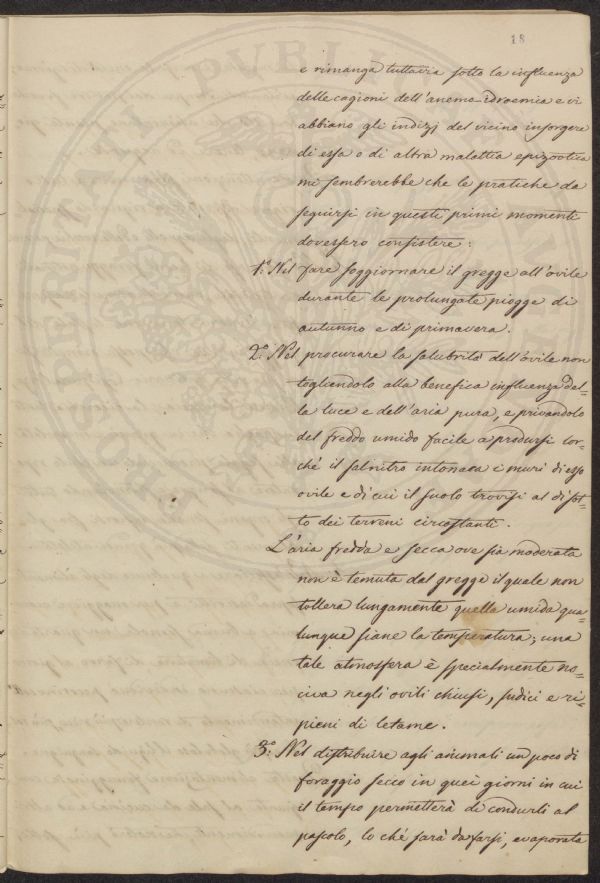 18
e rimanga tuttavia sotto la influenza
delle cagioni dell'anemo-idroemia e vi
abbiano gli indizj del vicino insorgere
di essa o di altra malattia epizootica
mi sembrerebbe che le pratiche da
seguirsi in questi primi momenti
dovessero consistere:
1.º Nel fare soggiornare il gregge all'ovile
durante le prolungate piogge di
autunno e di primavera.
2.º Nel procurare la salubrità dell'ovile non
togliendolo alla benefica influenza del-
la luce e dell'aria pura, e privandolo
del freddo umido facile a prodursi lor-
ché il salnitro intonaca i muri di esso
ovile e di cui il suolo trovisi al di sot-
to dei terreni circostanti.
L'aria fredda e secca ove sia moderata
non è temuta dal gregge il quale non
tollera lungamente quella umida qua-
lunque siane la temperatura; una
tale atmosfera è specialmente no-
civa negli ovili chiusi, sudici e ri-
pieni di letame.
3.º Nel distribuire agli animali un poco di
foraggio secco in quei giorni in cui
il tempo permetterà di condurli al
pascolo, lo ché sarà da farsi, evaporata